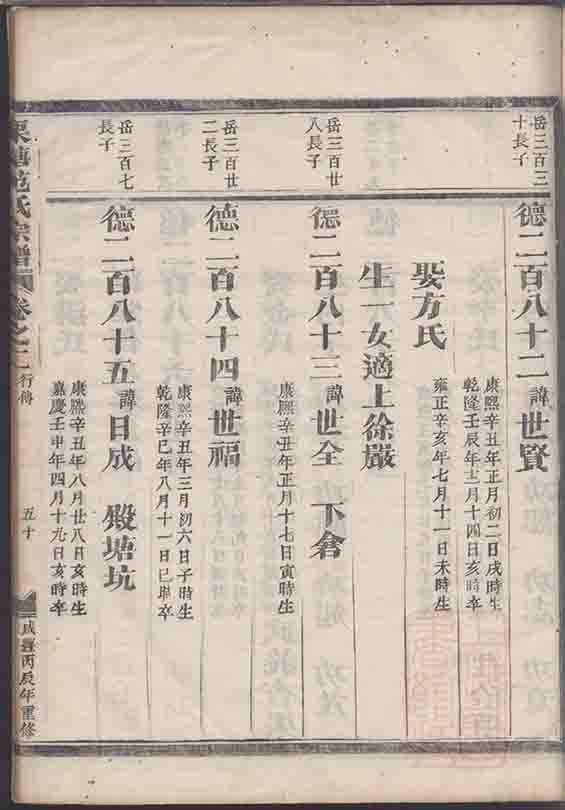 岳三百三
十長子
德二百八十二 諱世賢
康熙辛丑年正月初二日戌時生
乾隆壬辰年十二月十四日亥時卒
娶方氏
雍正辛亥年七月十一日未時生
生一女適上徐嚴
岳三百廿
八長子
德二百八十三 諱世全 下倉
康熙辛丑年正月十七日寅時生
岳三百廿
二長子
德二百八十四 諱世福
康熙辛丑年三月初六日子時生
乾隆辛巳年八月十一日巳時卒
岳三百七
長子
德二百八十五 諱日成 殿塘坑
康熙辛丑年八月廿八日亥時生
嘉慶壬申年四月十九日亥時卒
范氏宗譜 卷之二 行傳 五十 咸豐丙辰年重修